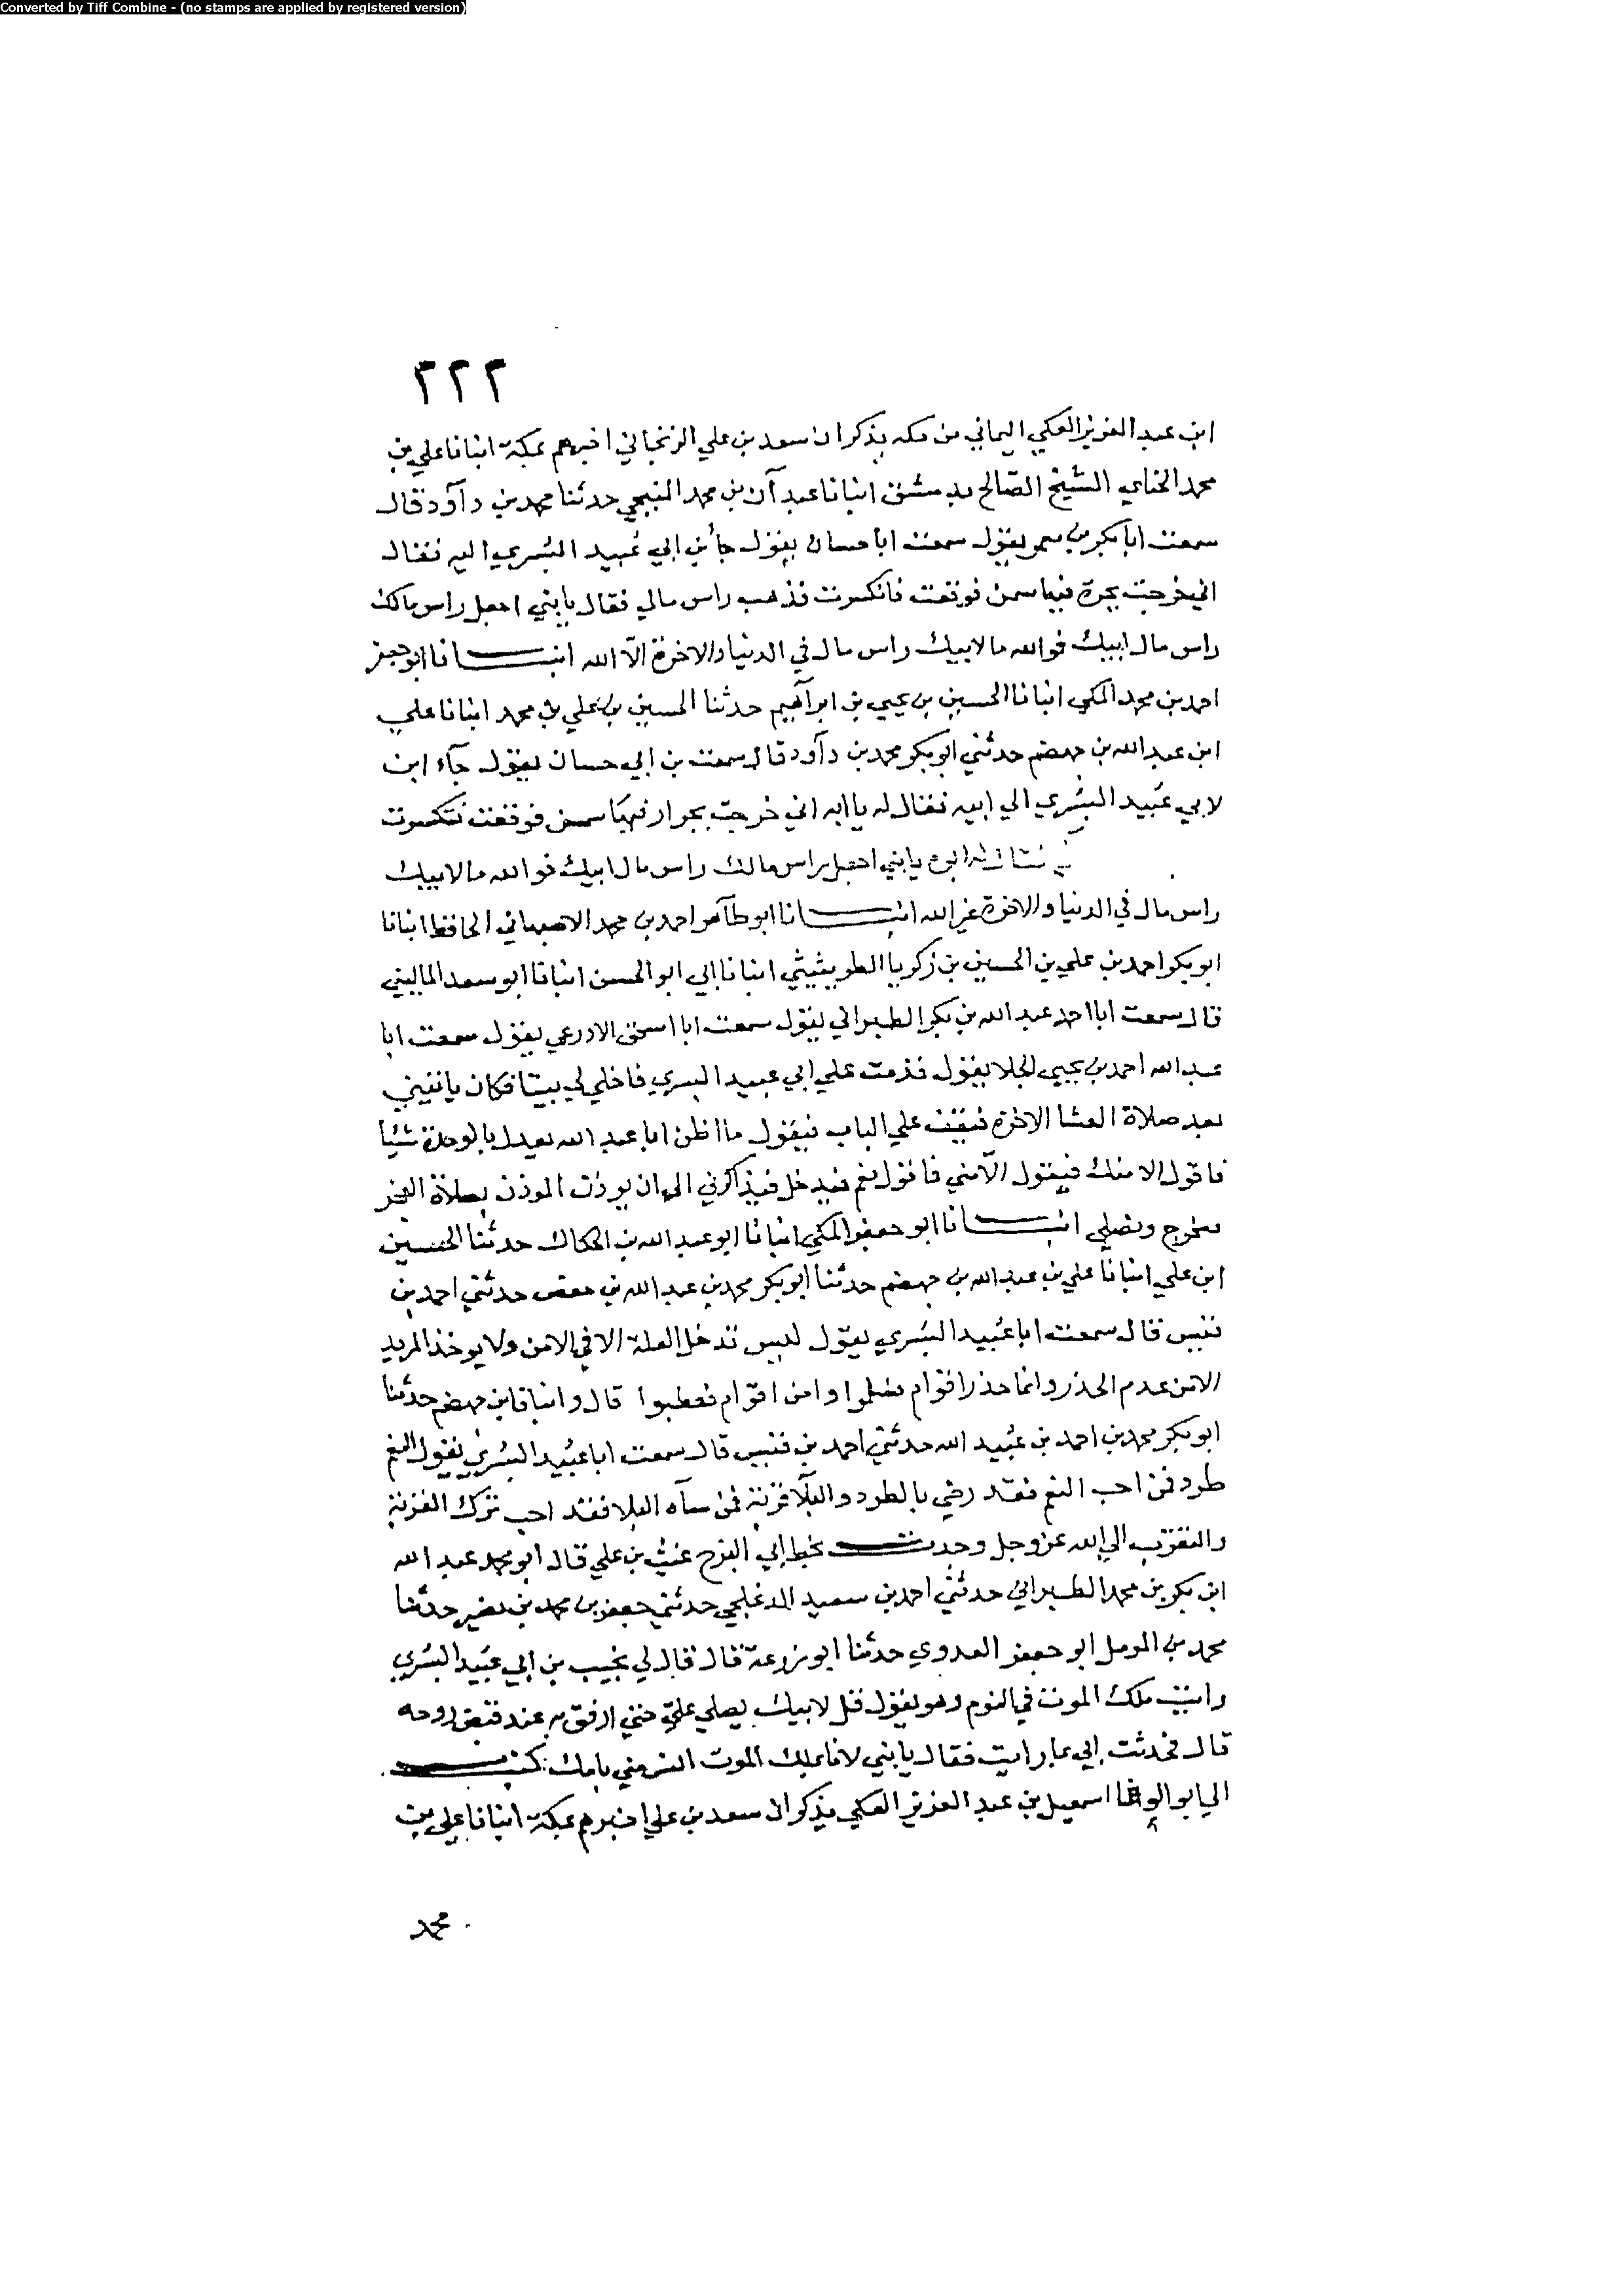 Converted by Tiff Combine - (no stamps are applied by registered version)
٢٢٢
ابن عبد العزيز العكي اليماني من مكه يذكر ان سعد بن علي الزنجاني اخبرهم بمكة انبانا علي بن
محمد الحناي الشيخ الصالح بدمشق انبانا عبدان بن محمد المنبجي حدثنا محمد بن دآود قال
سمعت ابا بكر بن معمر يقول سمعت ابا حسان يقول جا بن ابي عُبيد البُسري اليه فقال
اني خرجت بجرة فيها سمن فوقعت فانكسرت فذهب راس مالي فقال يا بني اجعل راس مالك
راس مال ابيك فوالله ما لابيك راس مال في الدنيا والاخرة الّا الله انبـــانا ابو جعفر
احمد بن محمد المكي انبانا الحسين بن يحيي بن ابراهيم حدثنا الحسين بن علي بن محمد انبانا علي
ابن عبد الله بن جهضم حدثني ابو بكر محمد بن دآود قال سمعت بن ابي حسان يقول جآء ابن
لابي عُبيد البُسري الي ابيه فقال له يا ابه اني خرجت بجرار فيها سمن فوقعت فتكسرت
فقال له ابوه يا بني اجعل راس مالك راس مال ابيك فوالله ما لابيك
راس مال في الدنيا والاخرة غير الله انبـــانا ابو طآهر احمد بن محمد الاصبهاني الحافظ انبانا
ابو بكر احمد بن علي بن الحسين بن زكريا الطريثيثي انبانا ابي ابو الحسن انبانا ابو سعد الماليني
قال سمعت ابا احمد عبد الله بن بكر الطبراني يقول سمعت ابا اسحق الاذرعي يقول سمعت ابا
عبد الله احمد بن يحيي الجلا يقول قدمت علي ابي عبيد البسري فاخلي لي بيتا فكان ياتيني
بعد صلاة العشا الاخرة فيقف علي الباب فيقول ما اظن ابا عبد الله يعدل بالوحدة شئيا
فاقول الا منك فيقول الّا مني فاقول نعم فيدخل فيذاكرني الي ان يوذن الموذن بصلاة الفجر
يخرج ويصلي انبـــانا ابو جعفر المكي انبانا ابو عبد الله بن الحكاك حدثنا الحسين
ابن علي انبانا علي بن عبد الله بن جهضم حدثنا ابو بكر محمد بن عبد الله بن حفص حدثني احمد بن
قنبس قال سمعت ابا عُبيد البُسري يقول ليس تدخل العلة الا في الامن ولا يوخذ المريد
الامن عدم الحذر وانما حذر اقوام فسلموا وامن اقوام فعطبوا قال وانبانا بن جهضم حدثنا
ابو بكر محمد بن احمد بن عُبيد الله حدثني احمد بن قنبس قال سمعت ابا عُبيد البُسري يقول النعم
طرد فمن احب النعم فقد رضي بالطرد والبلآ قربة فمن سآه البلا فقد احب ترك القربة
والتقرب الي الله عز وجل وجدتـــ بخط ابي الفرج غيث بن علي قال ابو محمد عبد الله
ابن بكر بن محمد الطبراني حدثني احمد بن سعيد حدثني جعفر بن محمد بن نصير حدثنا
محمد بن المومل ابو جعفر العدوي حدثنا ابو زرعة قال قال لي نجيب بن ابي عُبيد البُسري
رايت ملك الموت في النوم وهو يقول قل لابيك يصلي عليّ حتي ارفق به عند قبض روحه
قال فحدثت ابي بما رايت فقال يا بني لانا بملك الموت انس مني بامك كتبـــ
الي ابو الوفا اسمعيل بن عبد العزيز العكي يذكر ان سعد بن علي اخبرهم بمكة انبانا علي بن
محمد